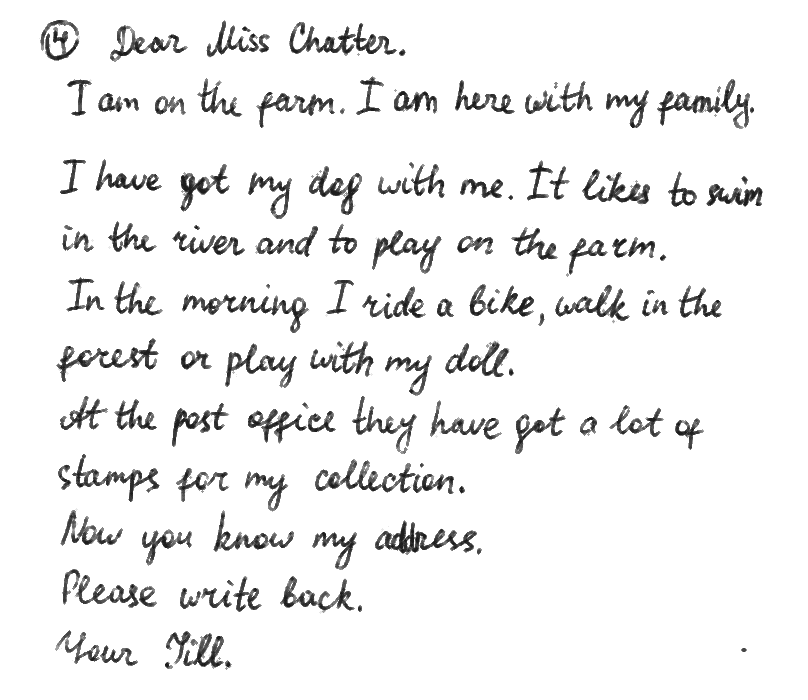 ④ Dear Miss Chatter.
I am on the farm. I am here with my family.
I have got my dog with me. It likes to swim
in the river and to play on the farm.
In the morning I ride a bike, walk in the
forest or play with my doll.
At the post office they have got a lot of
stamps for my collection.
Now you know my address.
Please write back.
Your Jill.